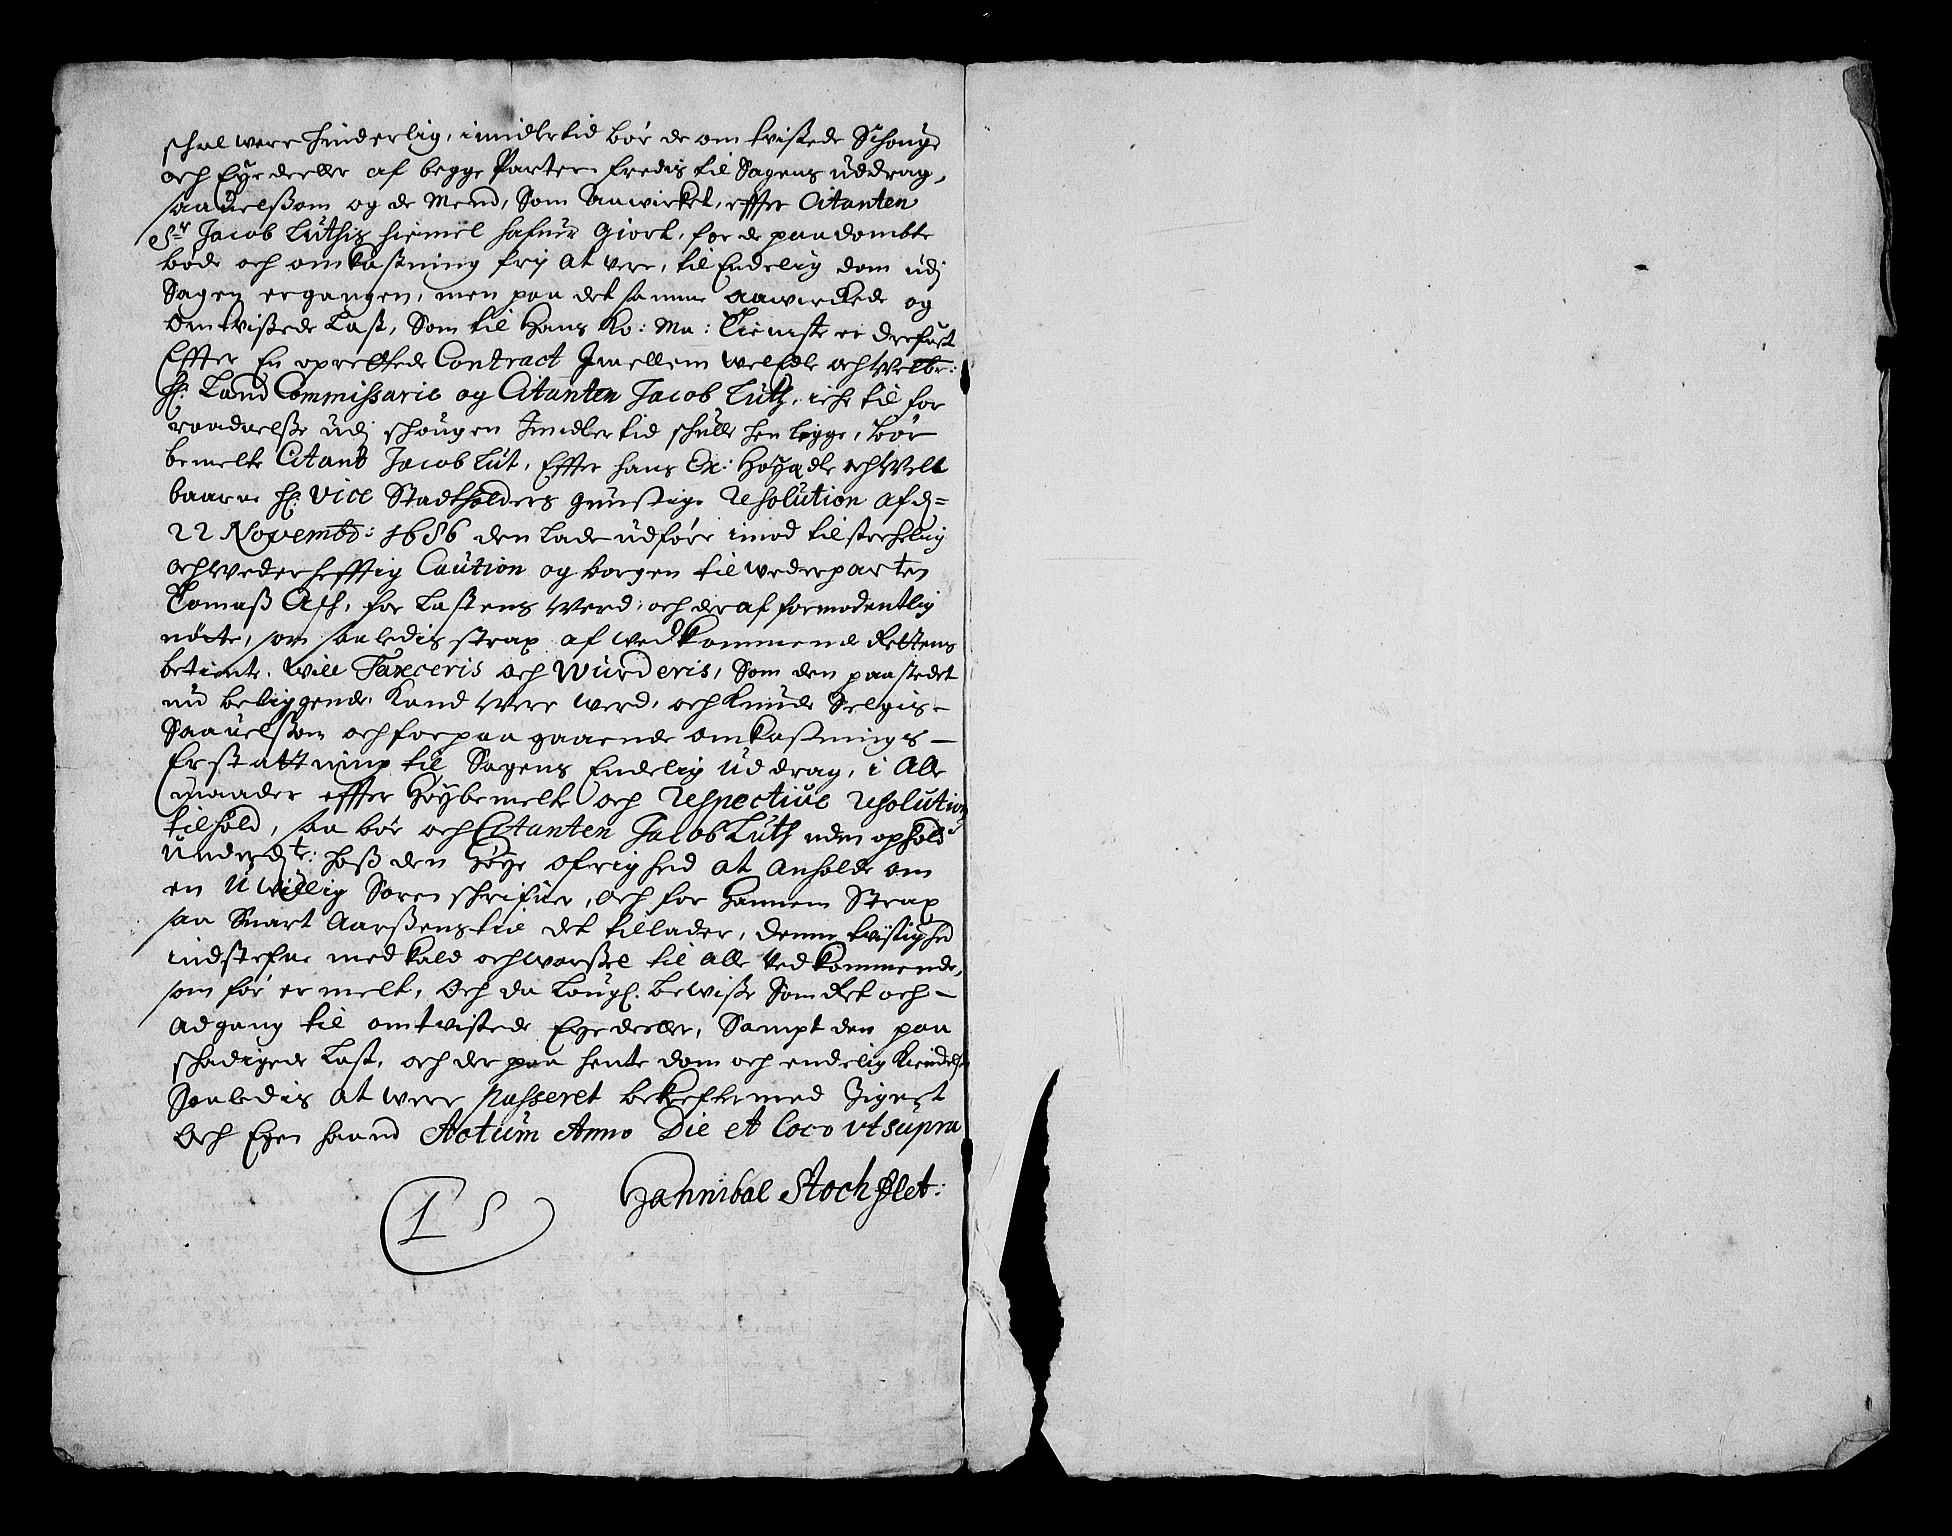 schal were hinderlig, imidlertid bör de omtvistede Schouge
och Eyedeeller af begge Parter fredis til Sagens uddrag,
saauelsom og de Mend, Som Anwirket, effter Citanten
Sr Jacob Lüthis hiemel hafuer giort, for de paadombte
böde och omkostning frÿ at vere, til Endelig dom udj
Sagen ergangen, men paa det samme aawirckede og
Omtvistede Last, Som til Hans Ko: Ma: Tieniste er
Effter En oprettede Contract Imellem welEdle och Welbr:
H: Land Commissarie og Citanten Jacob Lüth, iche til for
raadnelsse udj schougen Imidlertid schulle hen ligge, bör
bemelte Citant Jacob Lüt, Effter hans Ex: Höyædle och Vell
baarne H: Vice Stadtholders gunstige Resolution af d=
22 Novembr: 1686 den lade udföre imod tilstrechelig
och wederhefftig Caution og borgen til wederparten
Tomas Ash, for Lastens Werd, och deraf formodentlig
nötte, som saaledis strax af wedkommende Rettens
betiente will Taxceris och Wurderis, Som den paa stedet
nu beliggende kand Were werd, och kunde Selgis
Saauelsom och forpaagaaende omkostnings
Erstattning til Sagens Endelig Uddrag, i Alle
maader effter Höybemelte och Respective Resolution
tilhold, saa bör och Citanten Jacob Lüth uden ophold
hoss den Höye Öfrighed at anholde om
en Uwillig Sorenschrifuer, och for Hannem Strax
saa Snart Aarssens tid det tillader, denne tvistighed
indstefne med kald och warssel til alle Vedkommende,
som för er melt, Och da Lougl. bewisse Som Ret och
Adgang til omtvistede Eyedeeller, Sampt den paa
schadigede Last, och der paa hente dom och endelig kiendelse
Saaledis at were passeret bekrefter med Zignet
Och Egen haand Actum Anno Die et Loco ut supra
Hannibal Stochflet:
L S